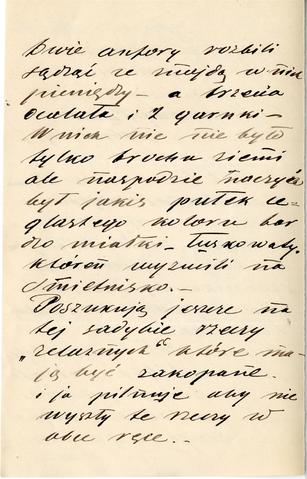 Dwie amfory rozbili
sądząc ze znajdą w nich
pieniądze – a trzecia
ocalała i 2 garnki –
W nich nic nie było
tylko trocha ziemi
ale naspodzie naczyń
był jakiś pułek ce=
glastego koloru bar
dzo miałki – łuskowaty,
któren wyrzucili na
śmietnisko. –
Poszukują jeszcze na
tej sadybie rzeczy
„zelaznych“ które ma-
ją być zakopane.
i ja pilnuje aby nie
wyszły te rzeczy w
obce ręce. –